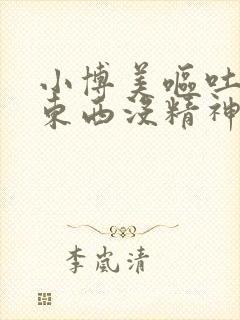 小博美嘔吐
東西沒精神
李嵐清